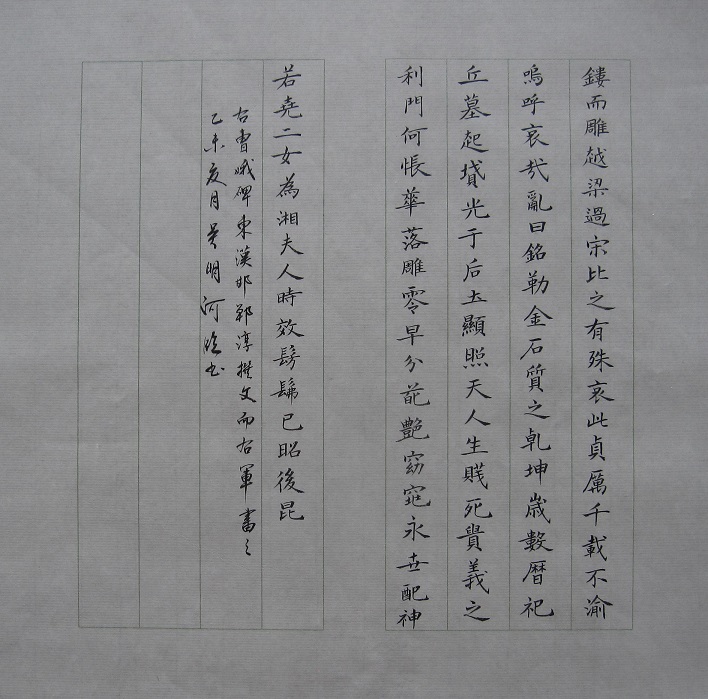 鏤而雕越梁過宋比之有殊哀此貞厲千載不渝
嗚呼哀哉亂曰銘勒金石質之乹坤歳數曆祀
丘墓起墳光于后土顯照天人生賤死貴義之
利門何悵華落雕零早分葩艶窈窕永世配神
若堯二女為湘夫人時效髣髴已昭後昆
右曹娥碑東漢邯鄲淳撰文而右軍書之
乙未夏月吴明河臨书